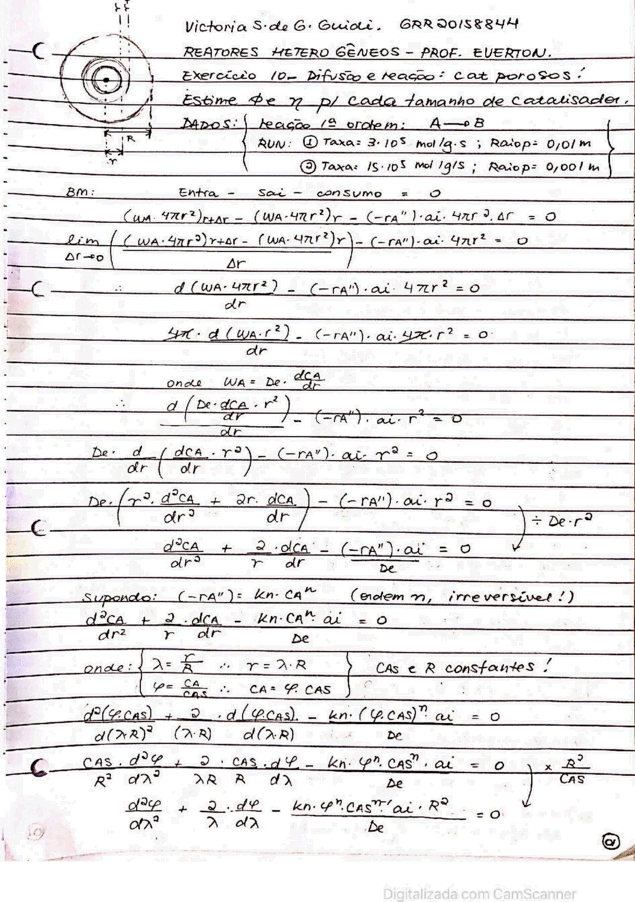 Victoria S. de G. Guidi. GRR20158844
REATORES HETEROGÊNEOS - PROF. EVERTON.
Exercício 10 - Difusão e reação: cat porosos!
Estime Φ e η p/ cada tamanho de catalisador.
DADOS: { reação 1ª ordem: A → B
RUN: ① Taxa = 3·10⁵ mol/g·s ; Raio p = 0,01 m
② Taxa = 15·10⁵ mol/g/s ; Raio p = 0,001 m }
R
r
BM: Entra - Sai - consumo = 0
(WA·4πr²)r+Δr - (WA·4πr²)r - (-rA'')·ai·4πr²·Δr = 0
lim Δr→0 ( ((WA·4πr²)r+Δr - (WA·4πr²)r) / Δr ) - (-rA'')·ai·4πr² = 0
∴ d(WA·4πr²)/dr - (-rA'')·ai·4πr² = 0
4π·d(WA·r²)/dr - (-rA'')·ai·4π·r² = 0
onde WA = De·dCA/dr
∴ d(De·dCA/dr·r²)/dr - (-rA'')·ai·r² = 0
De·d/dr (dCA/dr·r²) - (-rA'')·ai·r² = 0
De·(r²·d²CA/dr² + 2r·dCA/dr) - (-rA'')·ai·r² = 0
÷ De·r²
d²CA/dr² + 2/r·dCA/dr - (-rA'')·ai/De = 0
Supondo: (-rA'') = kn·CAⁿ (ordem n, irreversível!)
d²CA/dr² + 2/r·dCA/dr - kn·CAⁿ·ai/De = 0
onde: { λ = r/R ∴ r = λ·R
φ = CA/CAS ∴ CA = φ·CAS } CAS e R constantes!
d²(φ·CAS)/d(λ·R)² + 2/(λ·R)·d(φ·CAS)/d(λ·R) - kn·(φ·CAS)ⁿ·ai/De = 0
CAS/R²·d²φ/dλ² + 2/λR·CAS/R·dφ/dλ - kn·φⁿ·CASⁿ·ai/De = 0
× R²/CAS
d²φ/dλ² + 2/λ·dφ/dλ - kn·φⁿ·CASⁿ⁻¹·ai·R²/De = 0
Digitalizada com CamScanner